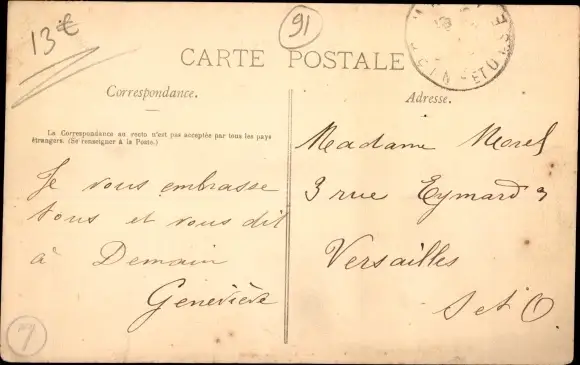 13€
91
CARTE POSTALE
Correspondance.
La Correspondance au verso n'est pas acceptée par tous les pays
étrangers. (Se renseigner à la Poste.)
Je vous embrasse
tous et vous dit
à Demain
Geneviève
Adresse.
Madame Morel
3 rue Eymard
Versailles
S et O